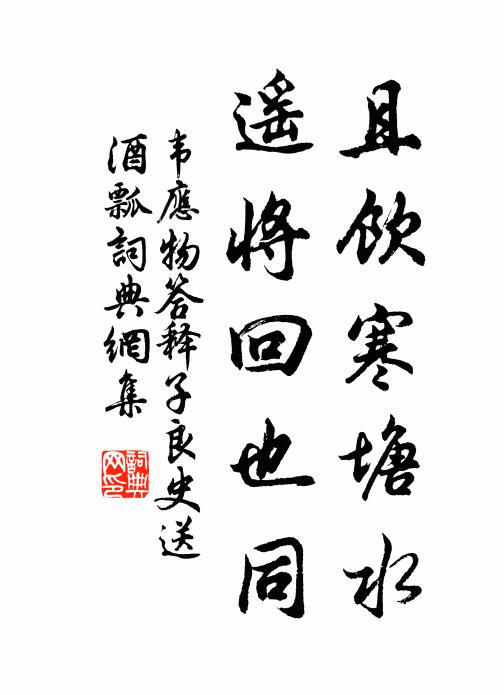 且饮寒塘水
遥将回也同
韦應物答释子良史送
酒瓢詞典網集
詞典
网印